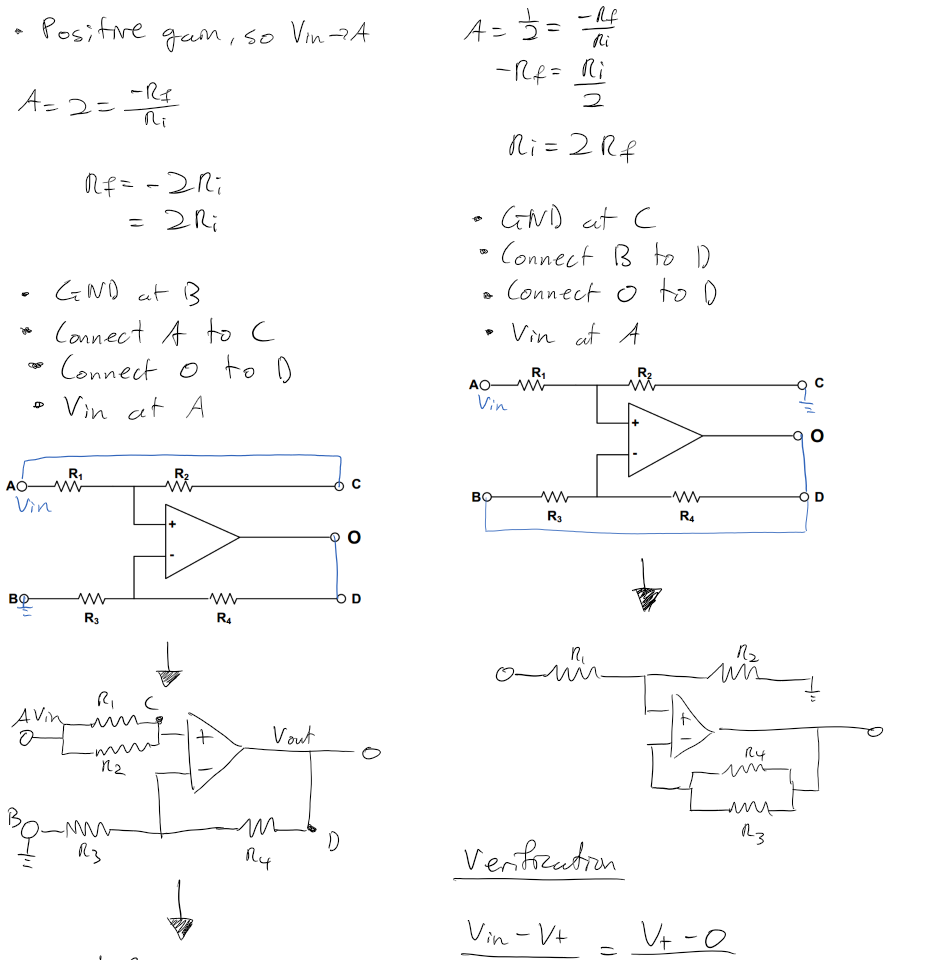 • Positive gain, so Vin → A
A = 2 = -Rf / Ri
Rf = - 2Ri
= 2Ri
• GND at B
• Connect A to C
• Connect O to D
• Vin at A
A R1 R2 C
Vin
+
-
O
B R3 R4 D
A Vin R1 C
R2
+
-
Vout
B R3 R4 D
A = 1/2 = -Rf / Ri
-Rf = Ri / 2
Ri = 2Rf
• GND at C
• Connect B to D
• Connect O to D
• Vin at A
A R1 R2 C
Vin
+
-
O
B R3 R4 D
R1 R2
+
-
R4
R3
Verification
Vin - V+ = V+ - 0